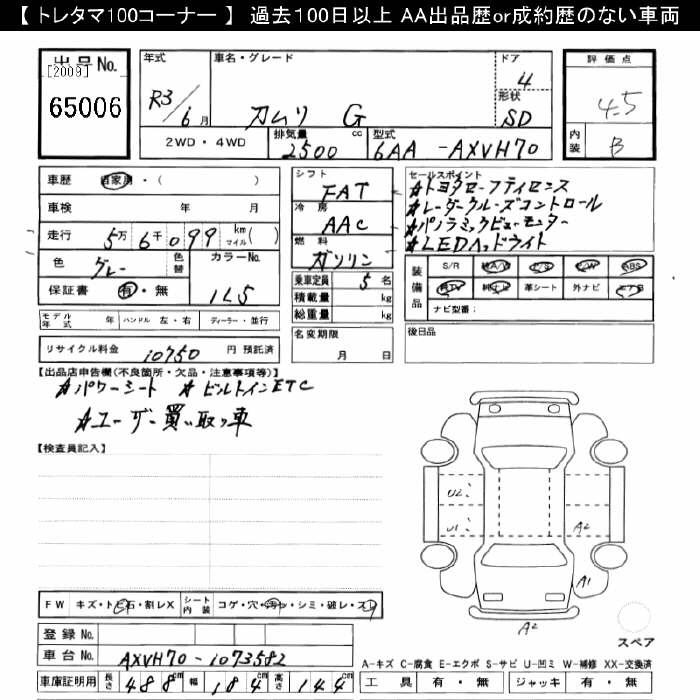 【 トレタマ100コーナー 】 過去100日以上 AA出品歴or成約歴のない車両
出品 No.
[2009]
65006
年式 車名・グレード ドア
R3/6月 カムリ G 4
形状
SD
2WD・4WD 排気量 2500 cc 型式 6AA -AXVH70
評価点
4.5
内装 B
車歴 自家用・( )
車検 年 月
走行 5万6千099 km マイル( )
色 グレー 色替 カラーNo.
保証書 有・無 1L5
モデル年式 年 ハンドル 左・右 ディーラー・並行
リサイクル料金 10750 円 預託済
シフト
FAT
冷房
AAC
燃料
ガソリン
乗車定員 5 名
積載量 kg
総重量 kg
名変期限
月 日
セールスポイント
#トヨタセーフティセンス
#レーダークルーズコントロール
#パノラミックビューモニター
#LEDヘッドライト
装備品 S/R 純A/W P/S P/W ABS
純TV 純ナビ 革シート 外ナビ エアB
ナビ型番:
後日品
【出品店申告欄(不良箇所・欠品・注意事項等)】
#パワーシート #ビルトインETC
#ユーザー買い取り車
【検査員記入】
U2
U1
A2
A1
A2
FW キズ・トビ石・割レX シート内装 コゲ・穴・汚レ・シミ・破レ・スレ
登録 No.
車台 No. AXVH70-1073582
車庫証明用 長さ 488cm 幅 184cm 高さ 144cm
スペア
A-キズ C-腐食 E-エクボ S-サビ U-凹ミ W-補修 XX-交換済
工具 有・無 ジャッキ 有・無